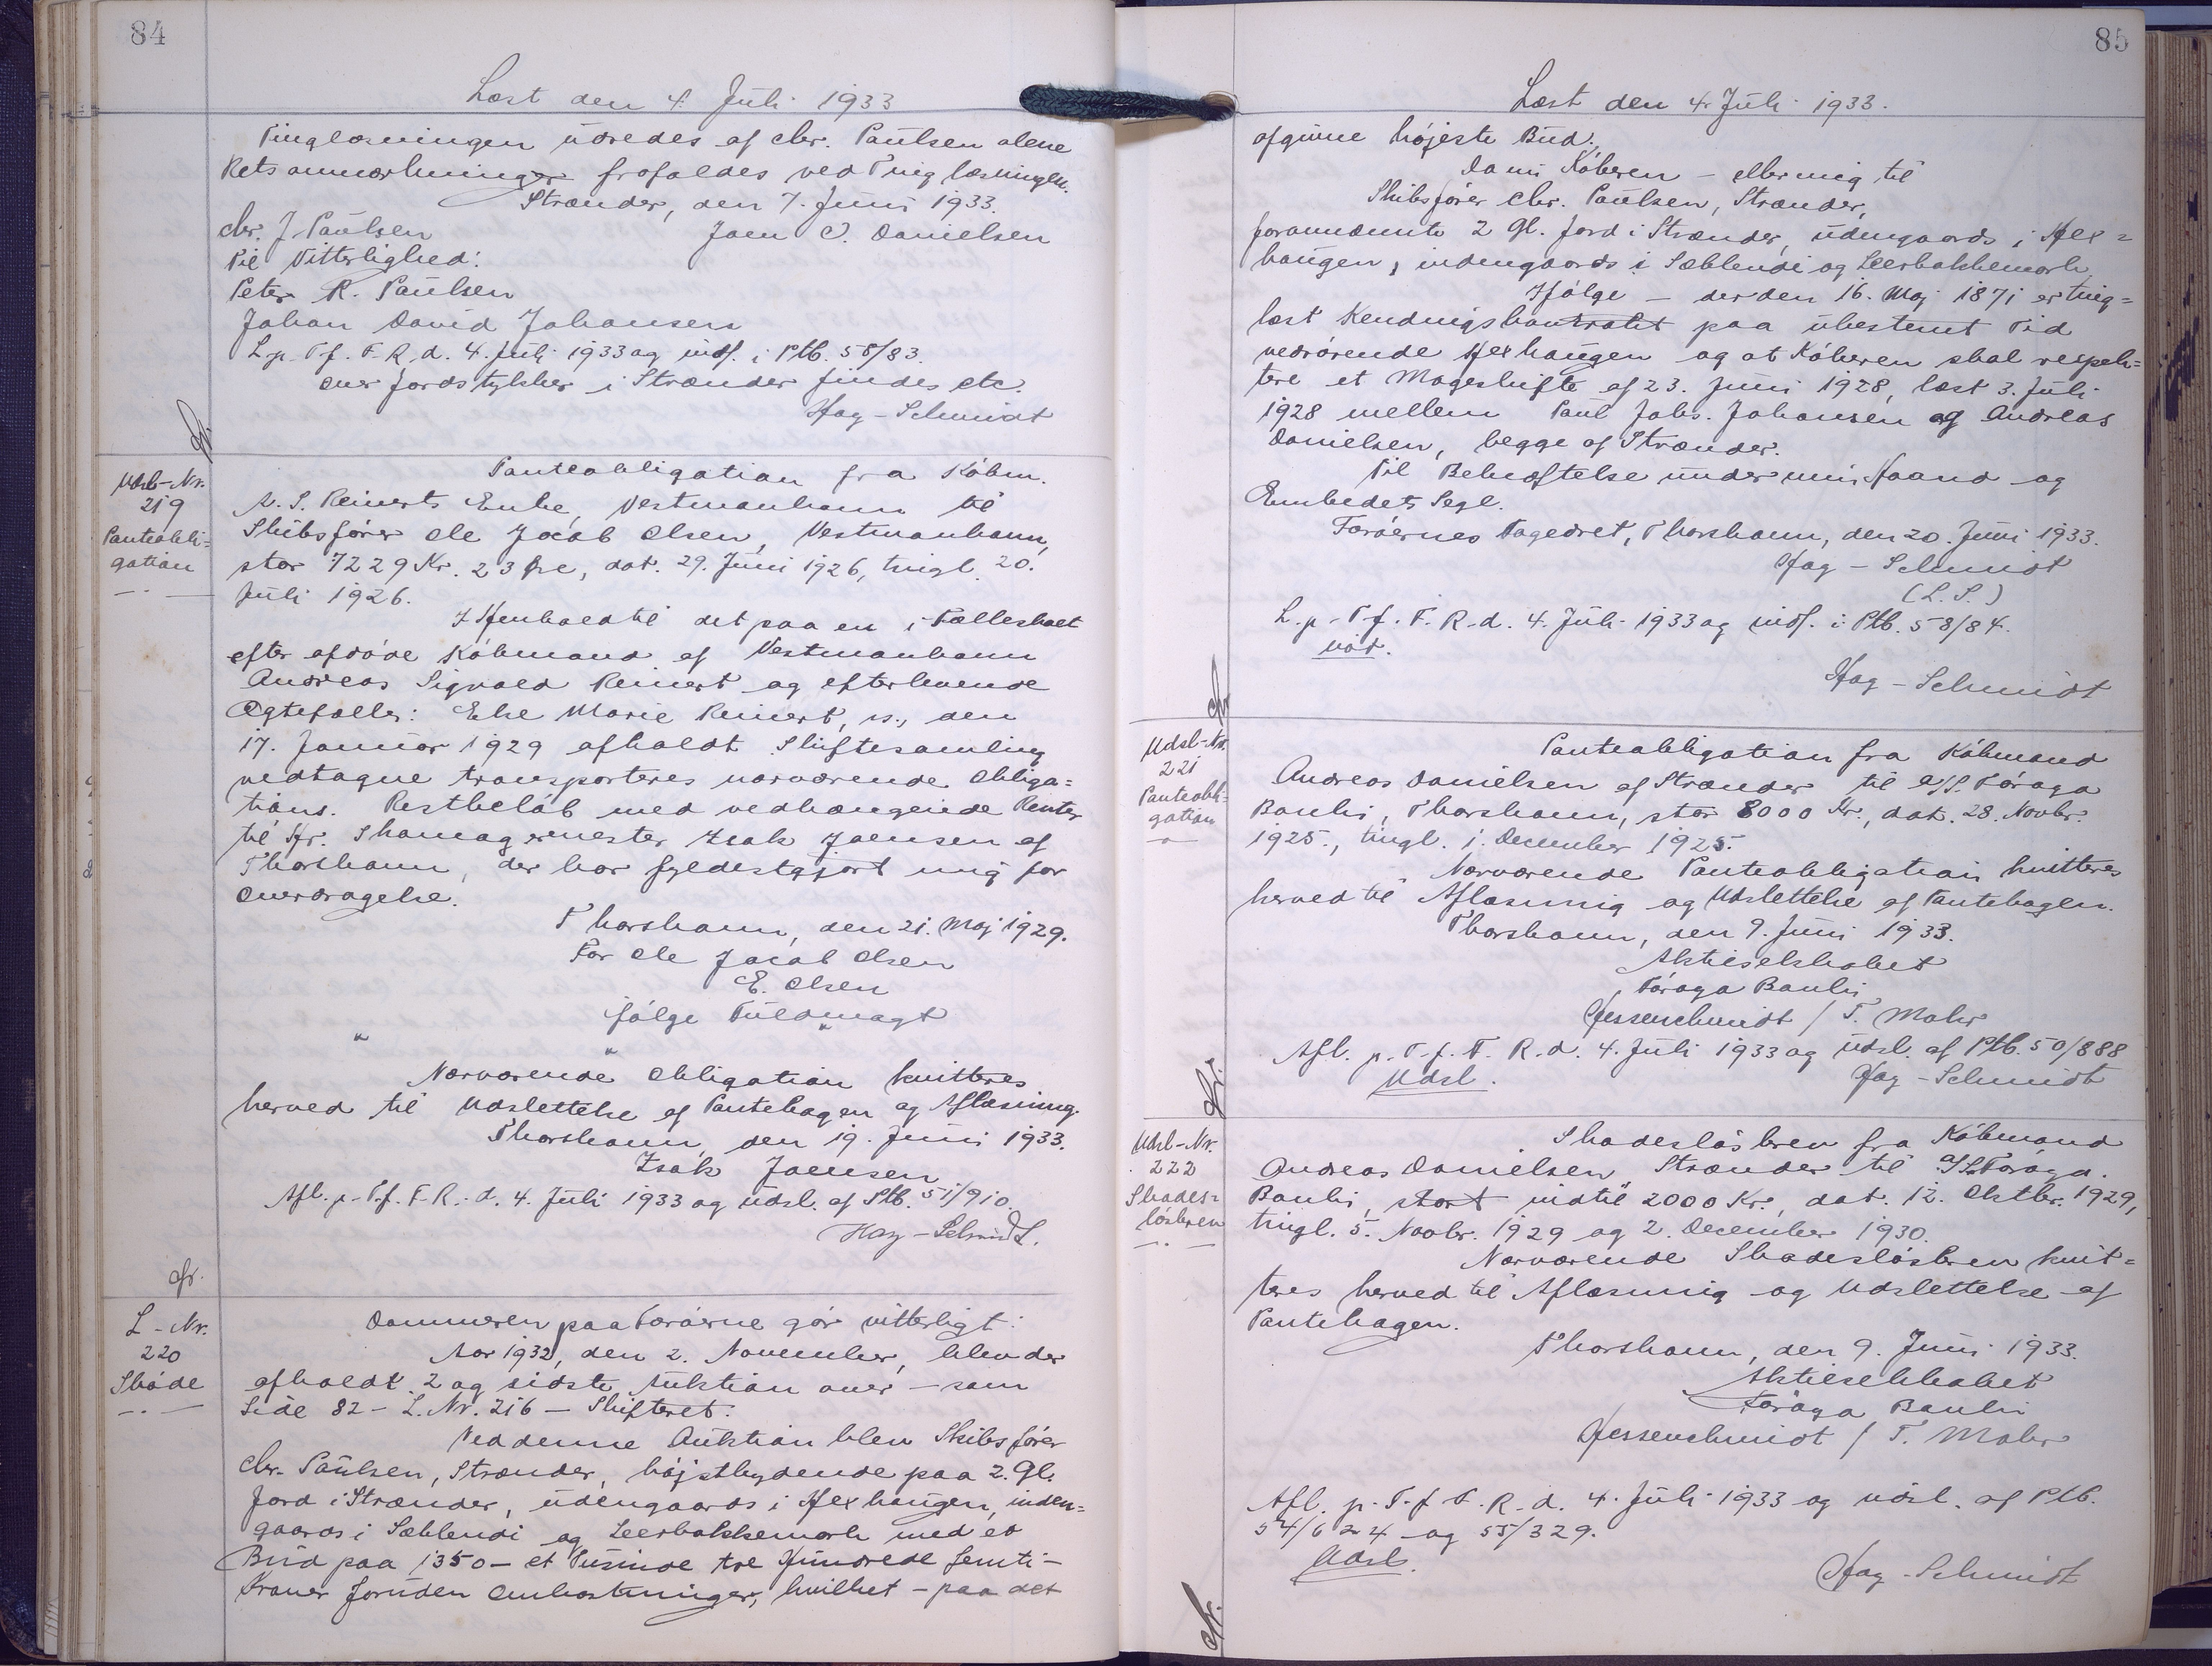 84
Læst den 4. Juli 1933
Tinglæsningen udredes af Chr. Paulsen alene
Retsanmærkninger frafaldes ved Tinglæsningen.
Strænder, den 7. Juni 1933.
Chr. J. Paulsen Joen C. Danielsen
Til Vitterlighed:
Peter R. Paulsen
Johan David Johansen
L. p. T. f. F. R. d. 4. Juli 1933 og indf. i Ptb. 58/83.
Over Jordstykker i Strænder findes etc.
Hag-Schmidt
Udsl-Nr.
219
Panteobli=
gation
Panteobligation fra Købm.
A. S. Reinerts Enke, Vestmanhavn til
Skibsfører Ole Jacob Olsen, Vestmanhavn,
stor 7229 Kr. 23 Øre, dat. 29. Juni 1926, tingl. 20.
Juli 1926.
I Henhold til det paa en i Fællesboet
efter afdøde Købmand af Vestmanhavn
Andreas Sigvald Reinert og efterlevende
Ægtefælle: Else Marie Reinert, n., den
17. Januar 1929 afholdt Skiftesamling
vedtagne transporteres nærværende Obliga=
tions. Restbeløb med vedhængende Renter
til Hr. Skomagermester Isak Joensen af
Thorshavn, der har fyldestgjort mig for
Overdragelse.
Thorshavn, den 21. Maj 1929.
For Ole Jacob Olsen
E. Olsen
ifølge Fuldmagt
" " "
Nærværende Obligation kvitteres
herved til Udslettelse af Pantebogen og Aflæsning.
Thorshavn, den 19. Juni 1933.
Isak Joensen
Afl. p. T. f. F. R. d. 4. Juli 1933 og udsl. af Ptb. 51/910.
Hag-Schmidt.
L-Nr.
220
Skøde
Dommeren paa Færøerne gør vitterligt:
Aar 1932, den 2. November, blev der
afholdt 2 og sidste Auktion over - som
Side 82 - L. Nr. 216 - Skifteret.
Ved denne Auktion blev Skibsfører
Chr. Paulsen, Strænder, højstbydende paa 2. Gl.
Jord i Strænder, udengaards i Hexhaugen, inden=
gaards i Sæblendi og Leerbakkemark med et
Bud paa 1350 - et Tusinde tre Hundrede femti -
Kroner foruden Omkostninger, hvilket - paa det
85
Læst den 4. Juli 1933.
afgivne højeste Bud.
Da nu Køberen - eller mig til
Skibsfører Chr. Paulsen, Strænder,
forannævnte 2 Gl. Jord i Strænder, udengaards i Hex=
haugen, indengaards i Sæblendi og Leerbakkemark,
Ifølge - der den 16. Maj 1871 er ting=
læst Kendningskontrakt paa ubestemt Tid
vedrørende Hexhaugen og at Køberen skal respek=
tere et Mageskifte af 23. Juni 1928, læst 3. Juli
1928 mellem Paul Johs. Johansen og Andreas
Danielsen, begge af Strænder.
Til Bekræftelse under min Haand og
Embedets Segl.
Færøernes Fogedret, Thorshavn, den 20. Juni 1933.
Hag-Schmidt
(L. S.)
L. p. T. f. F. R. d. 4. Juli 1933 og indf. i Ptb. 58/84.
Hag-Schmidt
Udsl-Nr.
221
Panteobli=
gation
Panteobligation fra Købmand
Andreas Danielsen af Strænder til A/S. Føroya
Banki, Thorshavn, stor 8000 Kr., dat. 28. Novbr.
1925., tingl. 1. December 1925.
Nærværende Panteobligation kvitteres
herved til Aflæsning og Udslettelse af Pantebogen.
Thorshavn, den 9. Juni 1933.
Aktieselskabet
Føroya Banki
Jessenschmidt / T. Mohr
Afl. p. T. f. F. R. d. 4. Juli 1933 og udsl. af Ptb. 50/888
Udsl. Hag-Schmidt
Udsl-Nr.
222
Skades=
løsbrev
Skadesløsbrev fra Købmand
Andreas Danielsen Strænder til A/S. Føroya.
Banki, stort indtil 2000 Kr., dat. 12. Oktbr. 1929,
tingl. 5. Novbr. 1929 og 2. December 1930.
Nærværende Skadesløsbrev kvit=
teres herved til Aflæsning og Udslettelse af
Pantebogen.
Thorshavn, den 9. Juni 1933.
Aktieselskabet
Føroya Banki
Jessenschmidt / T. Mohr
Afl. p. T. f. F. R. d. 4. Juli 1933 og udsl. af Ptb.
54/624 og 55/329.
Udsl.
Hag-Schmidt